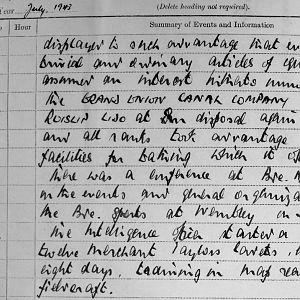 Year July. 1943 (Delete heading not required).
Hour Summary of Events and Information
displayed to such advantage that even
trivial and ordinary articles of
assume an interest hitherto
the GRAND UNION CANAL COMPANY
RUISLIP LIDO at disposal again
and all ranks took advantage
facilities for bathing which it
There was a conference at Bde. H
on the events and general organiza
the Bde. sports at Wembley on
The Intelligence Officer started a
twelve Merchant Taylors Cadets,
eight days, training in map rea
fieldcraft.